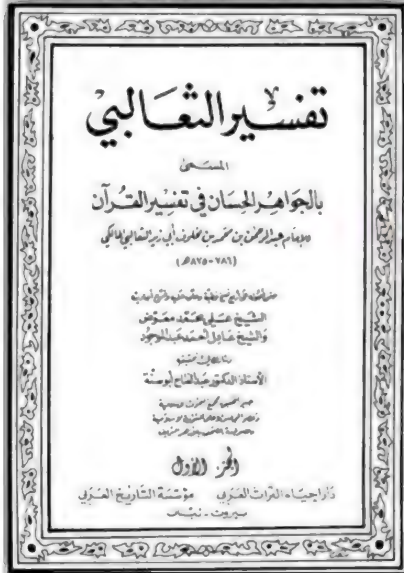 تفسير الثعالبي
المسمى
بالجواهر الحسان في تفسير القرآن
للإمام عبد الرحمن بن محمد بن مخلوف أبي زيد الثعالبي المالكي
(٧٨٦-٨٧٥هـ)
الشيخ علي محمد معوض
والشيخ عادل أحمد عبد الموجود
الأستاذ الدكتور عبد الفتاح أبو سنة
الجزء الأول
دار إحياء التراث العربي مؤسسة التاريخ العربي
بيروت - لبنان